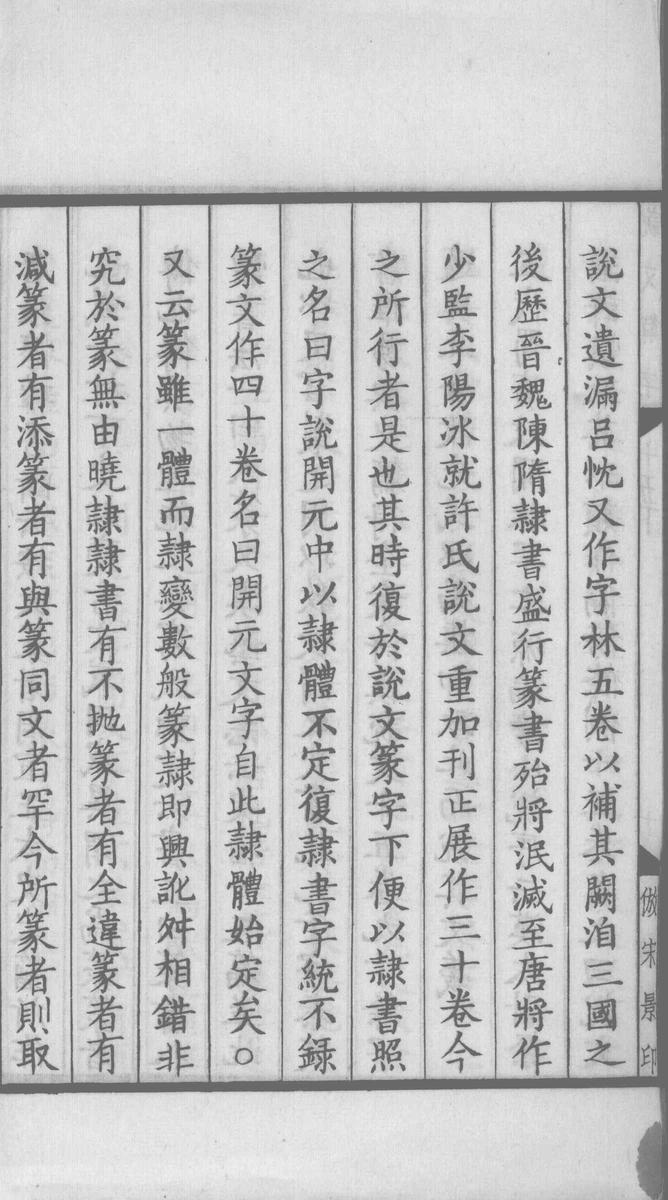 說文遺漏呂忱又作字林五卷以補其闕洎三國之
後歷晉魏陳隋隷書盛行篆書殆將泯滅至唐將作
少監李陽冰就許氏說文重加刊正展作三十卷今
之所行者是也其時復於說文篆字下便以隷書照
之名曰字說開元中以隷體不定復隷書字統不録
篆文作四十卷名曰開元文字自此隷體始定矣○
又云篆雖一體而隷變數般篆隷即興訛舛相錯非
究於篆無由曉隷隷書有不抛篆者有全違篆者有
減篆者有添篆者有與篆同文者罕今所篆者則取
倣宋景印